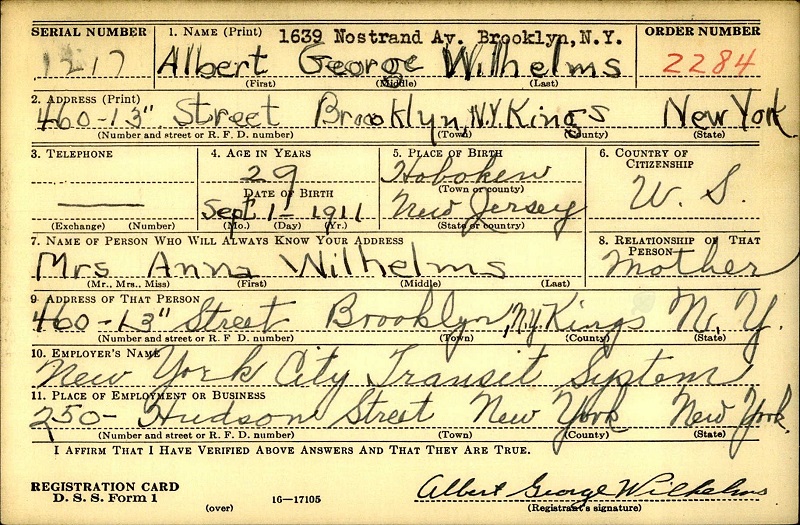 SERIAL NUMBER 1. NAME (Print) 1639 Nostrand Av. Brooklyn, N.Y. ORDER NUMBER
1217 Albert George Wilhelms 2284
(First) (Middle) (Last)
2. ADDRESS (Print)
460-13" Street Brooklyn, N.Y. Kings New York
(Number and street or R. F. D. number) (Town) (County) (State)
3. TELEPHONE 4. AGE IN YEARS 5. PLACE OF BIRTH 6. COUNTRY OF CITIZENSHIP
29 Hoboken
DATE OF BIRTH (Town or county) U. S.
Sept 1- 1911 New Jersey
(Exchange) (Number) (Mo.) (Day) (Yr.) (State or country)
7. NAME OF PERSON WHO WILL ALWAYS KNOW YOUR ADDRESS 8. RELATIONSHIP OF THAT PERSON
Mrs Anna Wilhelms Mother
(Mr., Mrs., Miss) (First) (Middle) (Last)
9. ADDRESS OF THAT PERSON
460-13" Street Brooklyn, N.Y. Kings N. Y.
(Number and street or R. F. D. number) (Town) (County) (State)
10. EMPLOYER'S NAME
New York City Transit System
11. PLACE OF EMPLOYMENT OR BUSINESS
250- Hudson Street New York New York.
(Number and street or R. F. D. number) (Town) (County) (State)
I AFFIRM THAT I HAVE VERIFIED ABOVE ANSWERS AND THAT THEY ARE TRUE.
REGISTRATION CARD
D. S. S. Form 1 (over) 16-17105 Albert George Wilhelms
(Registrant's signature)